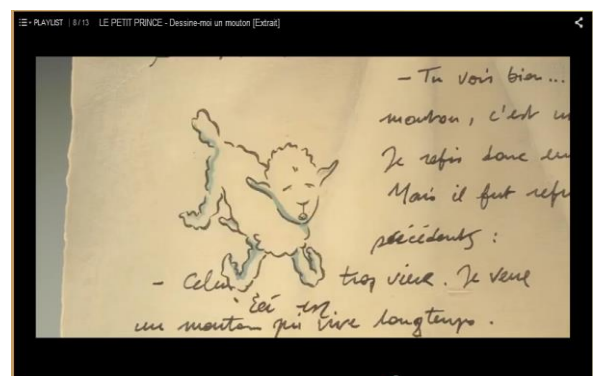 PLAYLIST | 8/13 LE PETIT PRINCE - Dessine-moi un mouton [Extrait]
– Tu vois bien...
mouton, c'est un
Je refis donc
Mais il fut refu
précédents :
– Celui trop vieux. Je veux
ci est
un mouton qui vive longtemps.